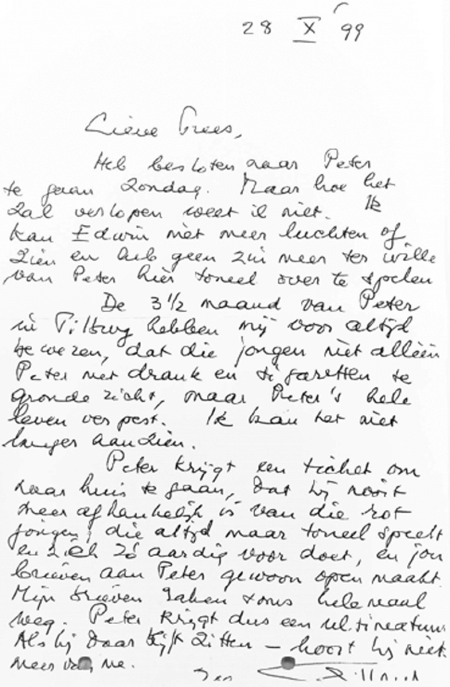 28 X '99
Lieve Trees,
Heb besloten naar Peter
te gaan Zondag. Maar hoe het
zal verlopen weet ik niet. Ik
kan Edwin niet meer luchten of
zien en heb geen zin meer ter wille
van Peter hier toneel over te spelen
De 3½ maand van Peter
in Tilburg hebben mij voor altijd
bewezen, dat die jongen niet alléén
Peter met drank en sigaretten te
gronde richt, maar Peter's hele
leven verpest. Ik kan het niet
langer aanzien.
Peter krijgt een ticket om
naar huis te gaan, dat hij nooit
meer afhankelijk is van die rot
jongen, die altijd maar toneel speelt
en zich zó aardig voor doet, en jou
brieven aan Peter gewoon open maakt.
Mijn brieven raken soms helemaal
weg. Peter krijgt dus een ultimatum
Als hij daar blijft zitten – hoort hij niet
meer van me.